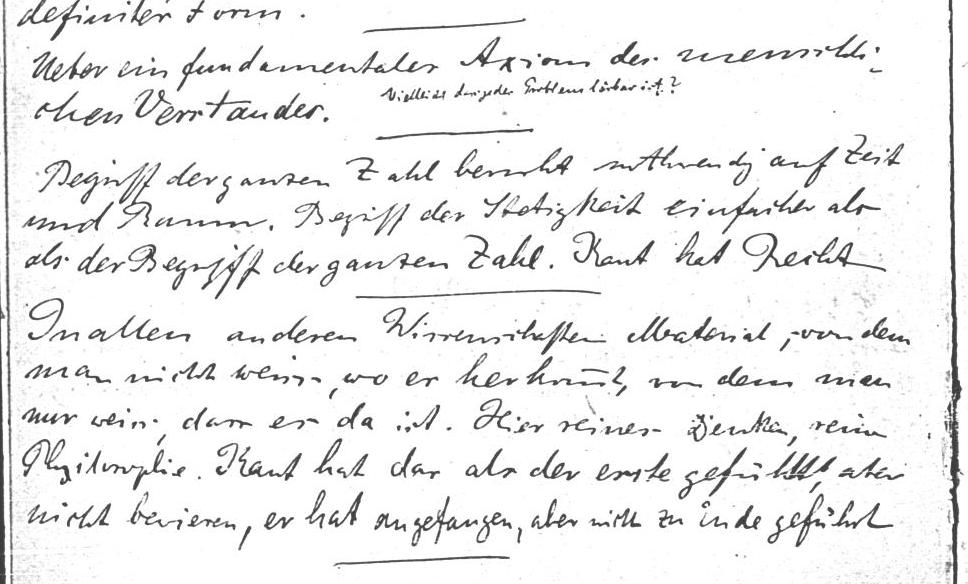 definiter Form.
Ueber ein fundamentales Axiom des menschli-
chen Verstandes. Vielleicht dass jedes Problem lösbar ist?
Begriff der ganzen Zahl beruht nothwendig auf Zeit
und Raum. Begriff der Stetigkeit einfacher als
als der Begriff der ganzen Zahl. Kant hat Recht
In allen anderen Wissenschaften Material, von dem
man nicht weiss, wo er herkomt, von dem man
nur weiss, dass es da ist. Hier reines Denken, reine
Philosophie. Kant hat das als der erste gefühlt, aber
nicht bewiesen, er hat angefangen, aber nicht zu Ende geführt